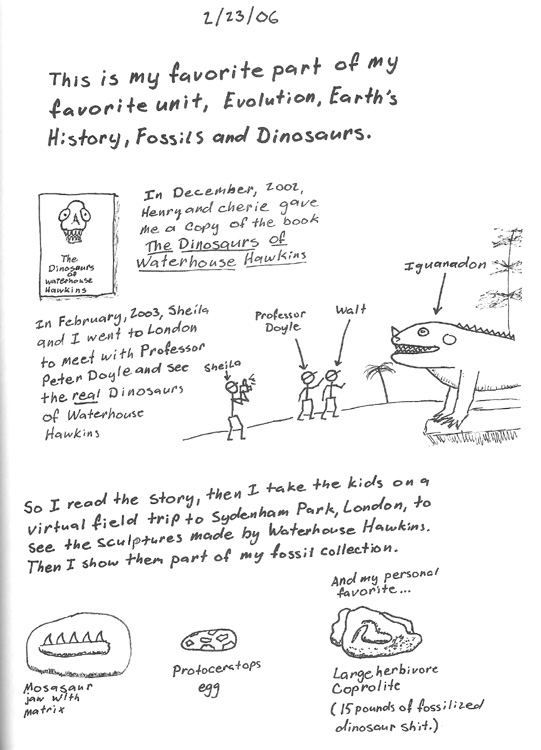 2/23/06
This is my favorite part of my
favorite unit, Evolution, Earth's
History, Fossils and Dinosaurs.
The
Dinosaurs
of
Waterhouse
Hawkins
In December, 2002,
Henry and cherie gave
me a copy of the book
The Dinosaurs of
Waterhouse Hawkins
In February, 2003, Sheila
and I went to London
to meet with Professor
Peter Doyle and see
the real Dinosaurs
of Waterhouse
Hawkins
Sheila
Professor
Doyle
Walt
Iguanadon
So I read the story, then I take the kids on a
virtual field trip to Sydenham Park, London, to
see the sculptures made by Waterhouse Hawkins.
Then I show them part of my fossil collection.
Mosasaur
jaw with
matrix
Protoceratops
egg
And my personal
favorite...
Large herbivore
Coprolite
(15 pounds of fossilized
dinosaur shit.)